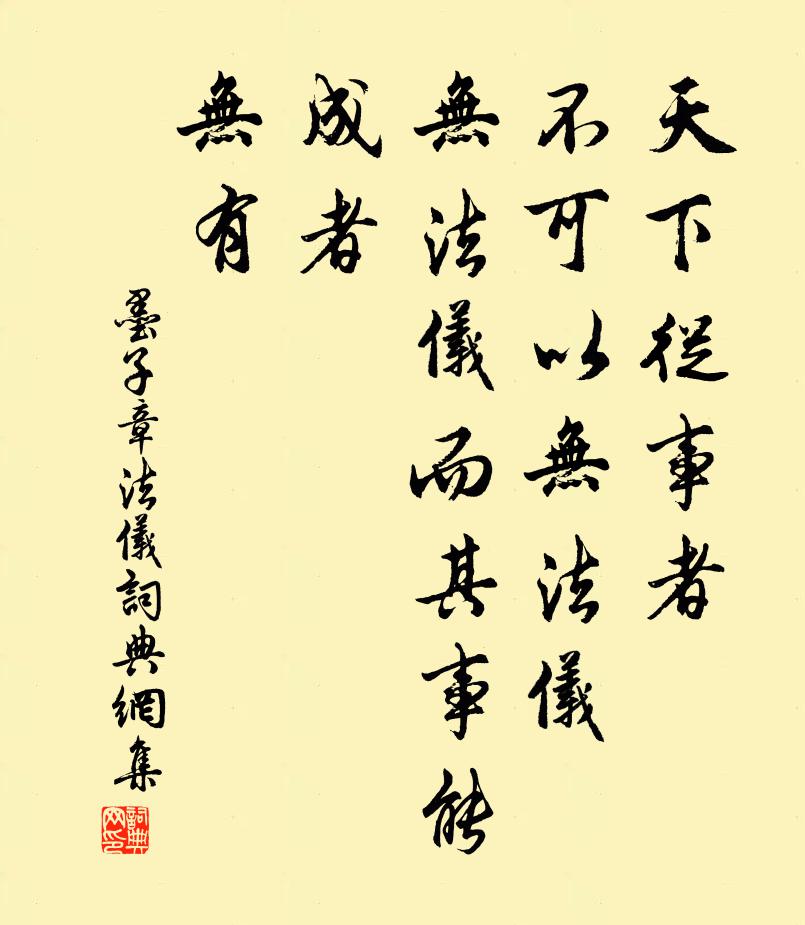 天下從事者
不可以無法儀
無法儀而其事能
成者
無有
墨子章法儀詞典網集
詞典网印